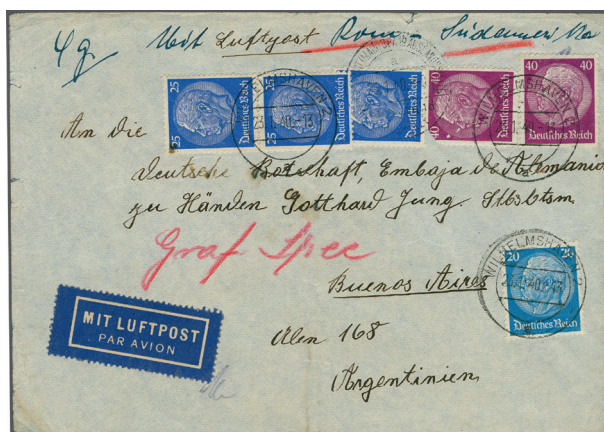 Mit Luftpost Rom - Südamerika
25 Deutsches Reich
25 Deutsches Reich
Deutsches Reich
40 Deutsches Reich
40 40 Deutsches Reich
WILHELMSHAVEN 2
An die
Deutsche Botschaft, Embaja de Alemania
zu Händen Gotthard Jung. Stbsbtsm.
Graf Spee
WILHELMSHAVEN 2
20 20
Deutsches Reich
Buenos Aires
MIT LUFTPOST
PAR AVION
Alen 168
Argentinien